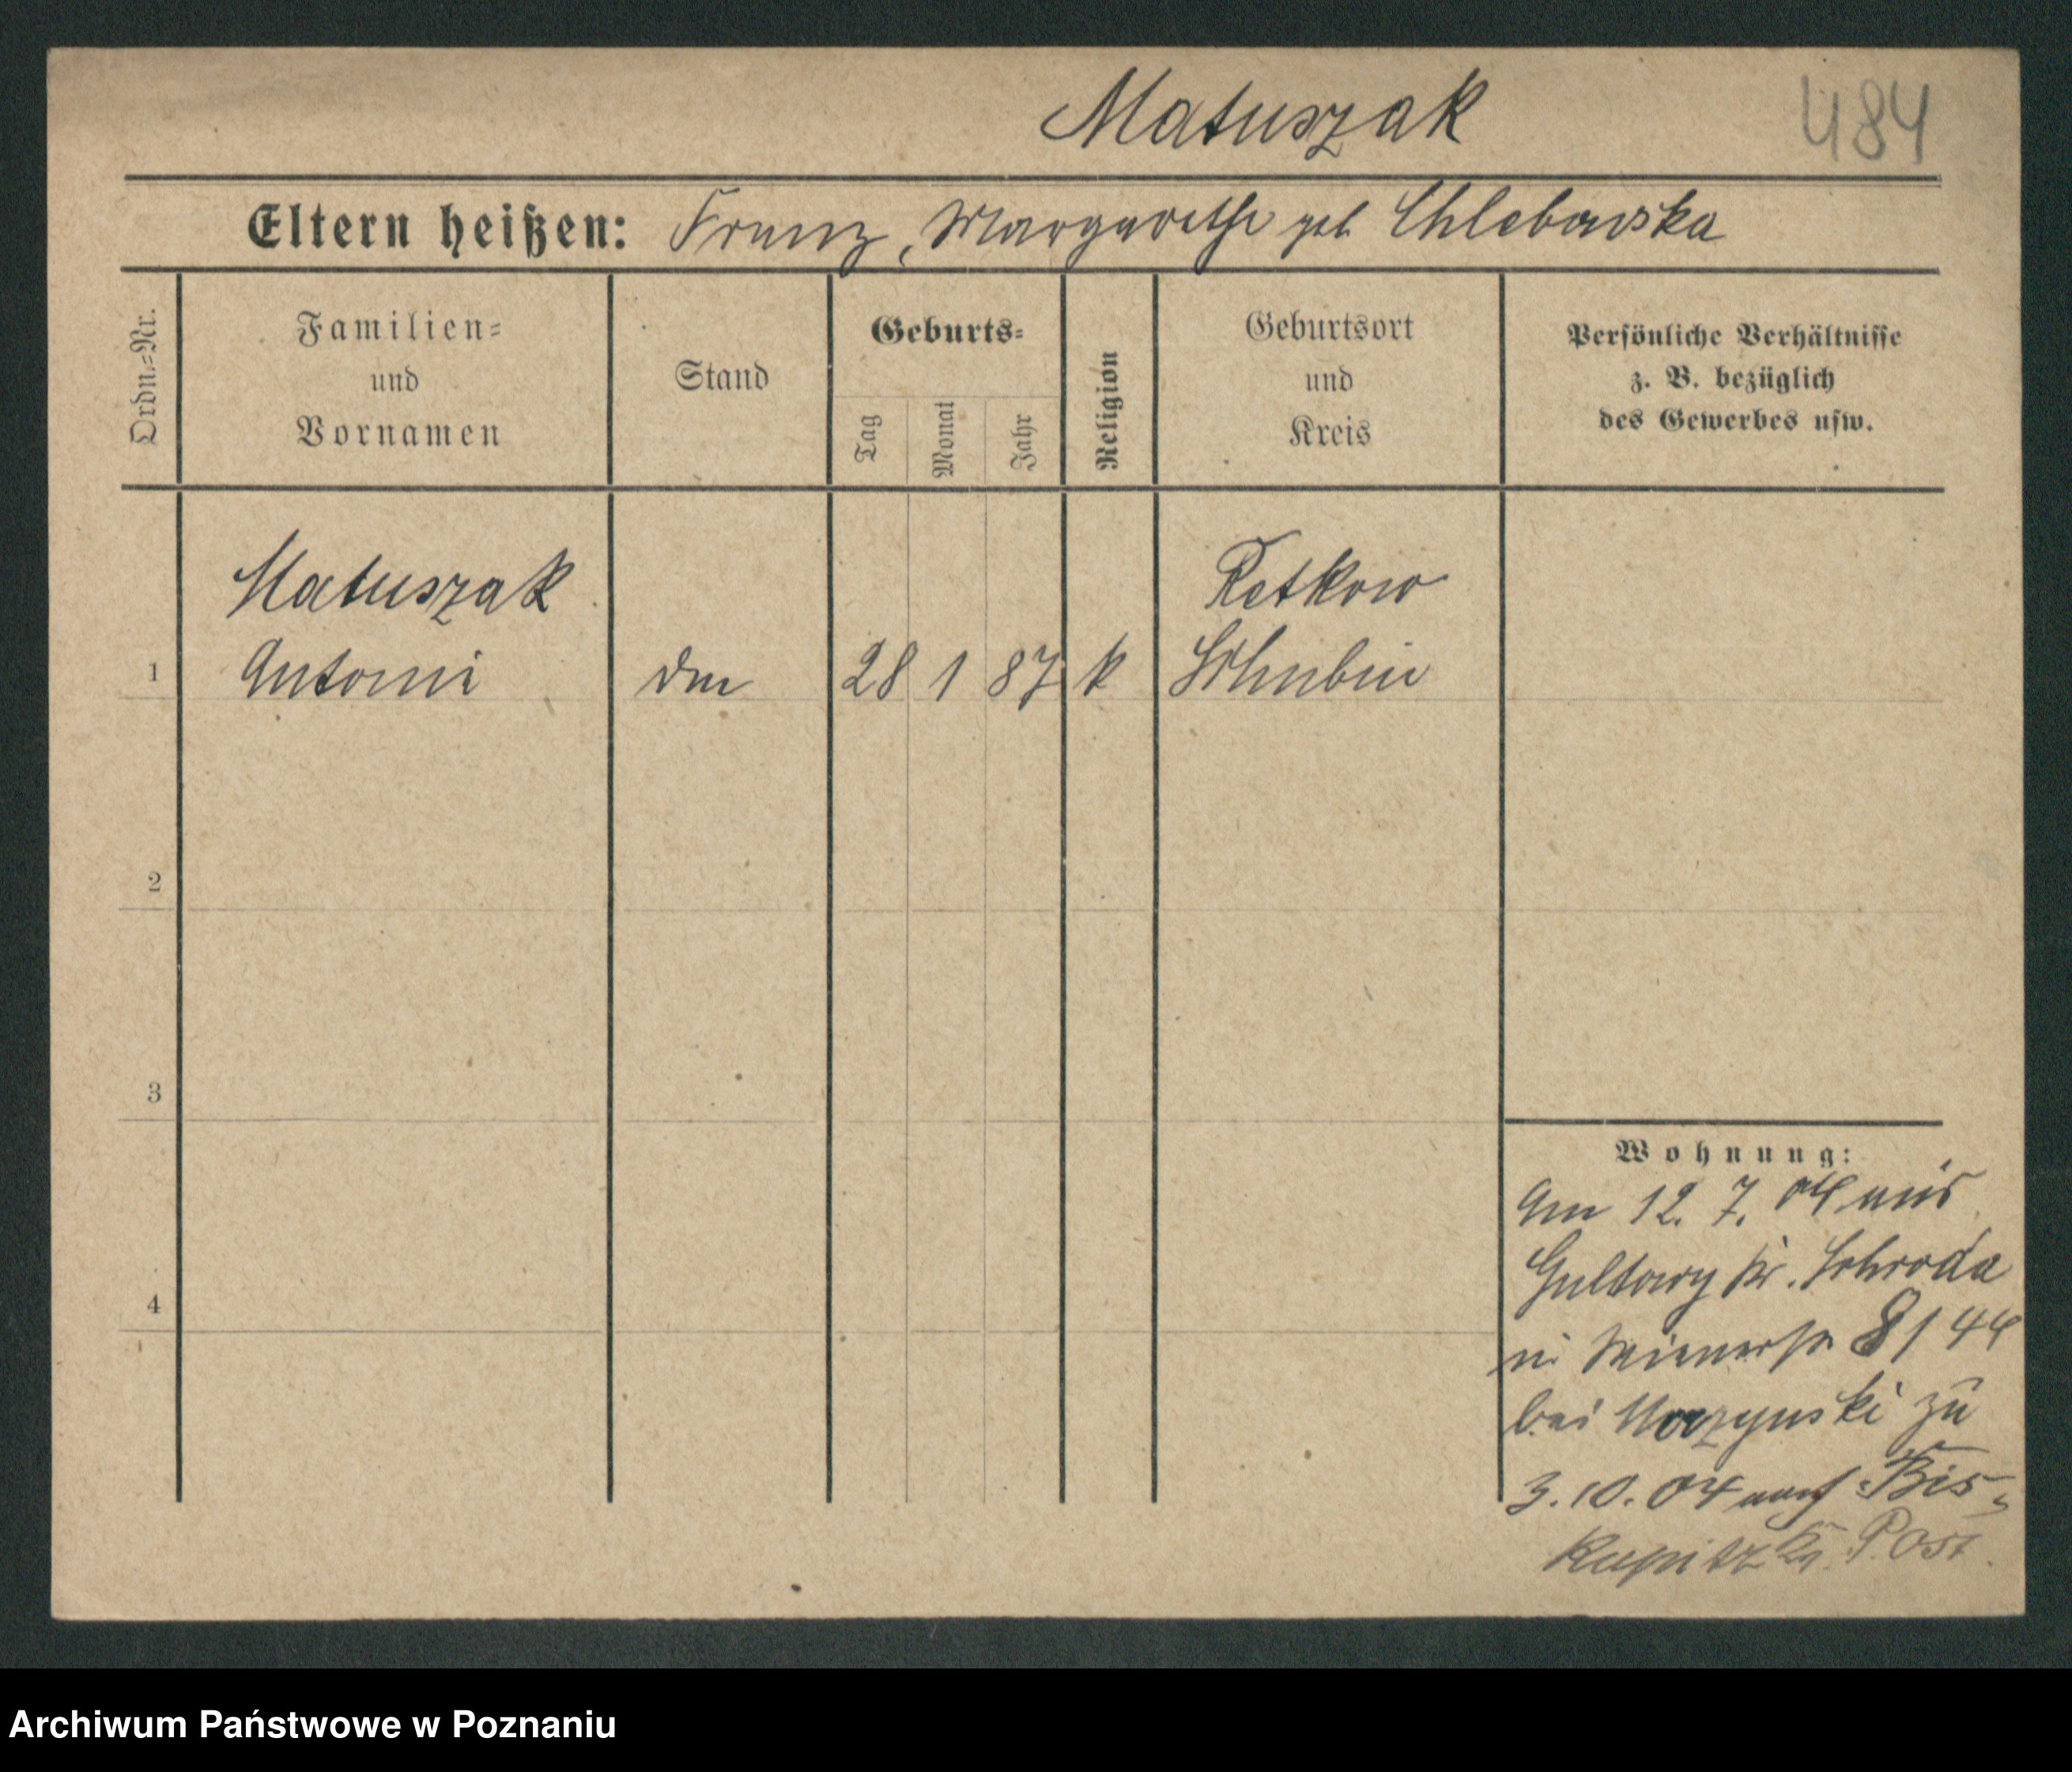 Matuszak
484
Eltern heißen: Franz, Margarethe geb Chlebowska
Ordn.=Nr.
Familien=
und
Vornamen
Stand
Geburts=
Tag
Monat
Jahr
Religion
Geburtsort
und
Kreis
Persönliche Verhältnisse
z. B. bezüglich
des Gewerbes usw.
Matuszak
Retkowo
1 Antoni 28 1 87 k Schubin
2
3
4
Wohnung:
Am 12. 7. 04 aus
Gultowy Kr. Schroda
in 8/44
bei zu
3.10.04 nach Bis-
kupitz Kr. Post.
Archiwum Państwowe w Poznaniu